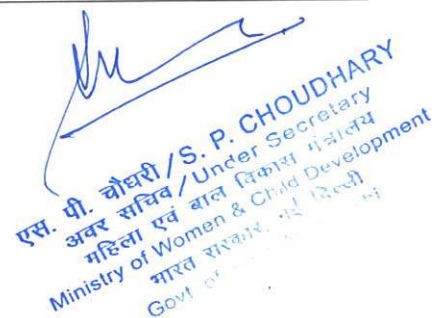 एस. पी. चौधरी / S. P. CHOUDHARY
अवर सचिव / Under Secretary
महिला एवं बाल विकास मंत्रालय
Ministry of Women & Child Development
भारत सरकार, नई दिल्ली
Govt. of